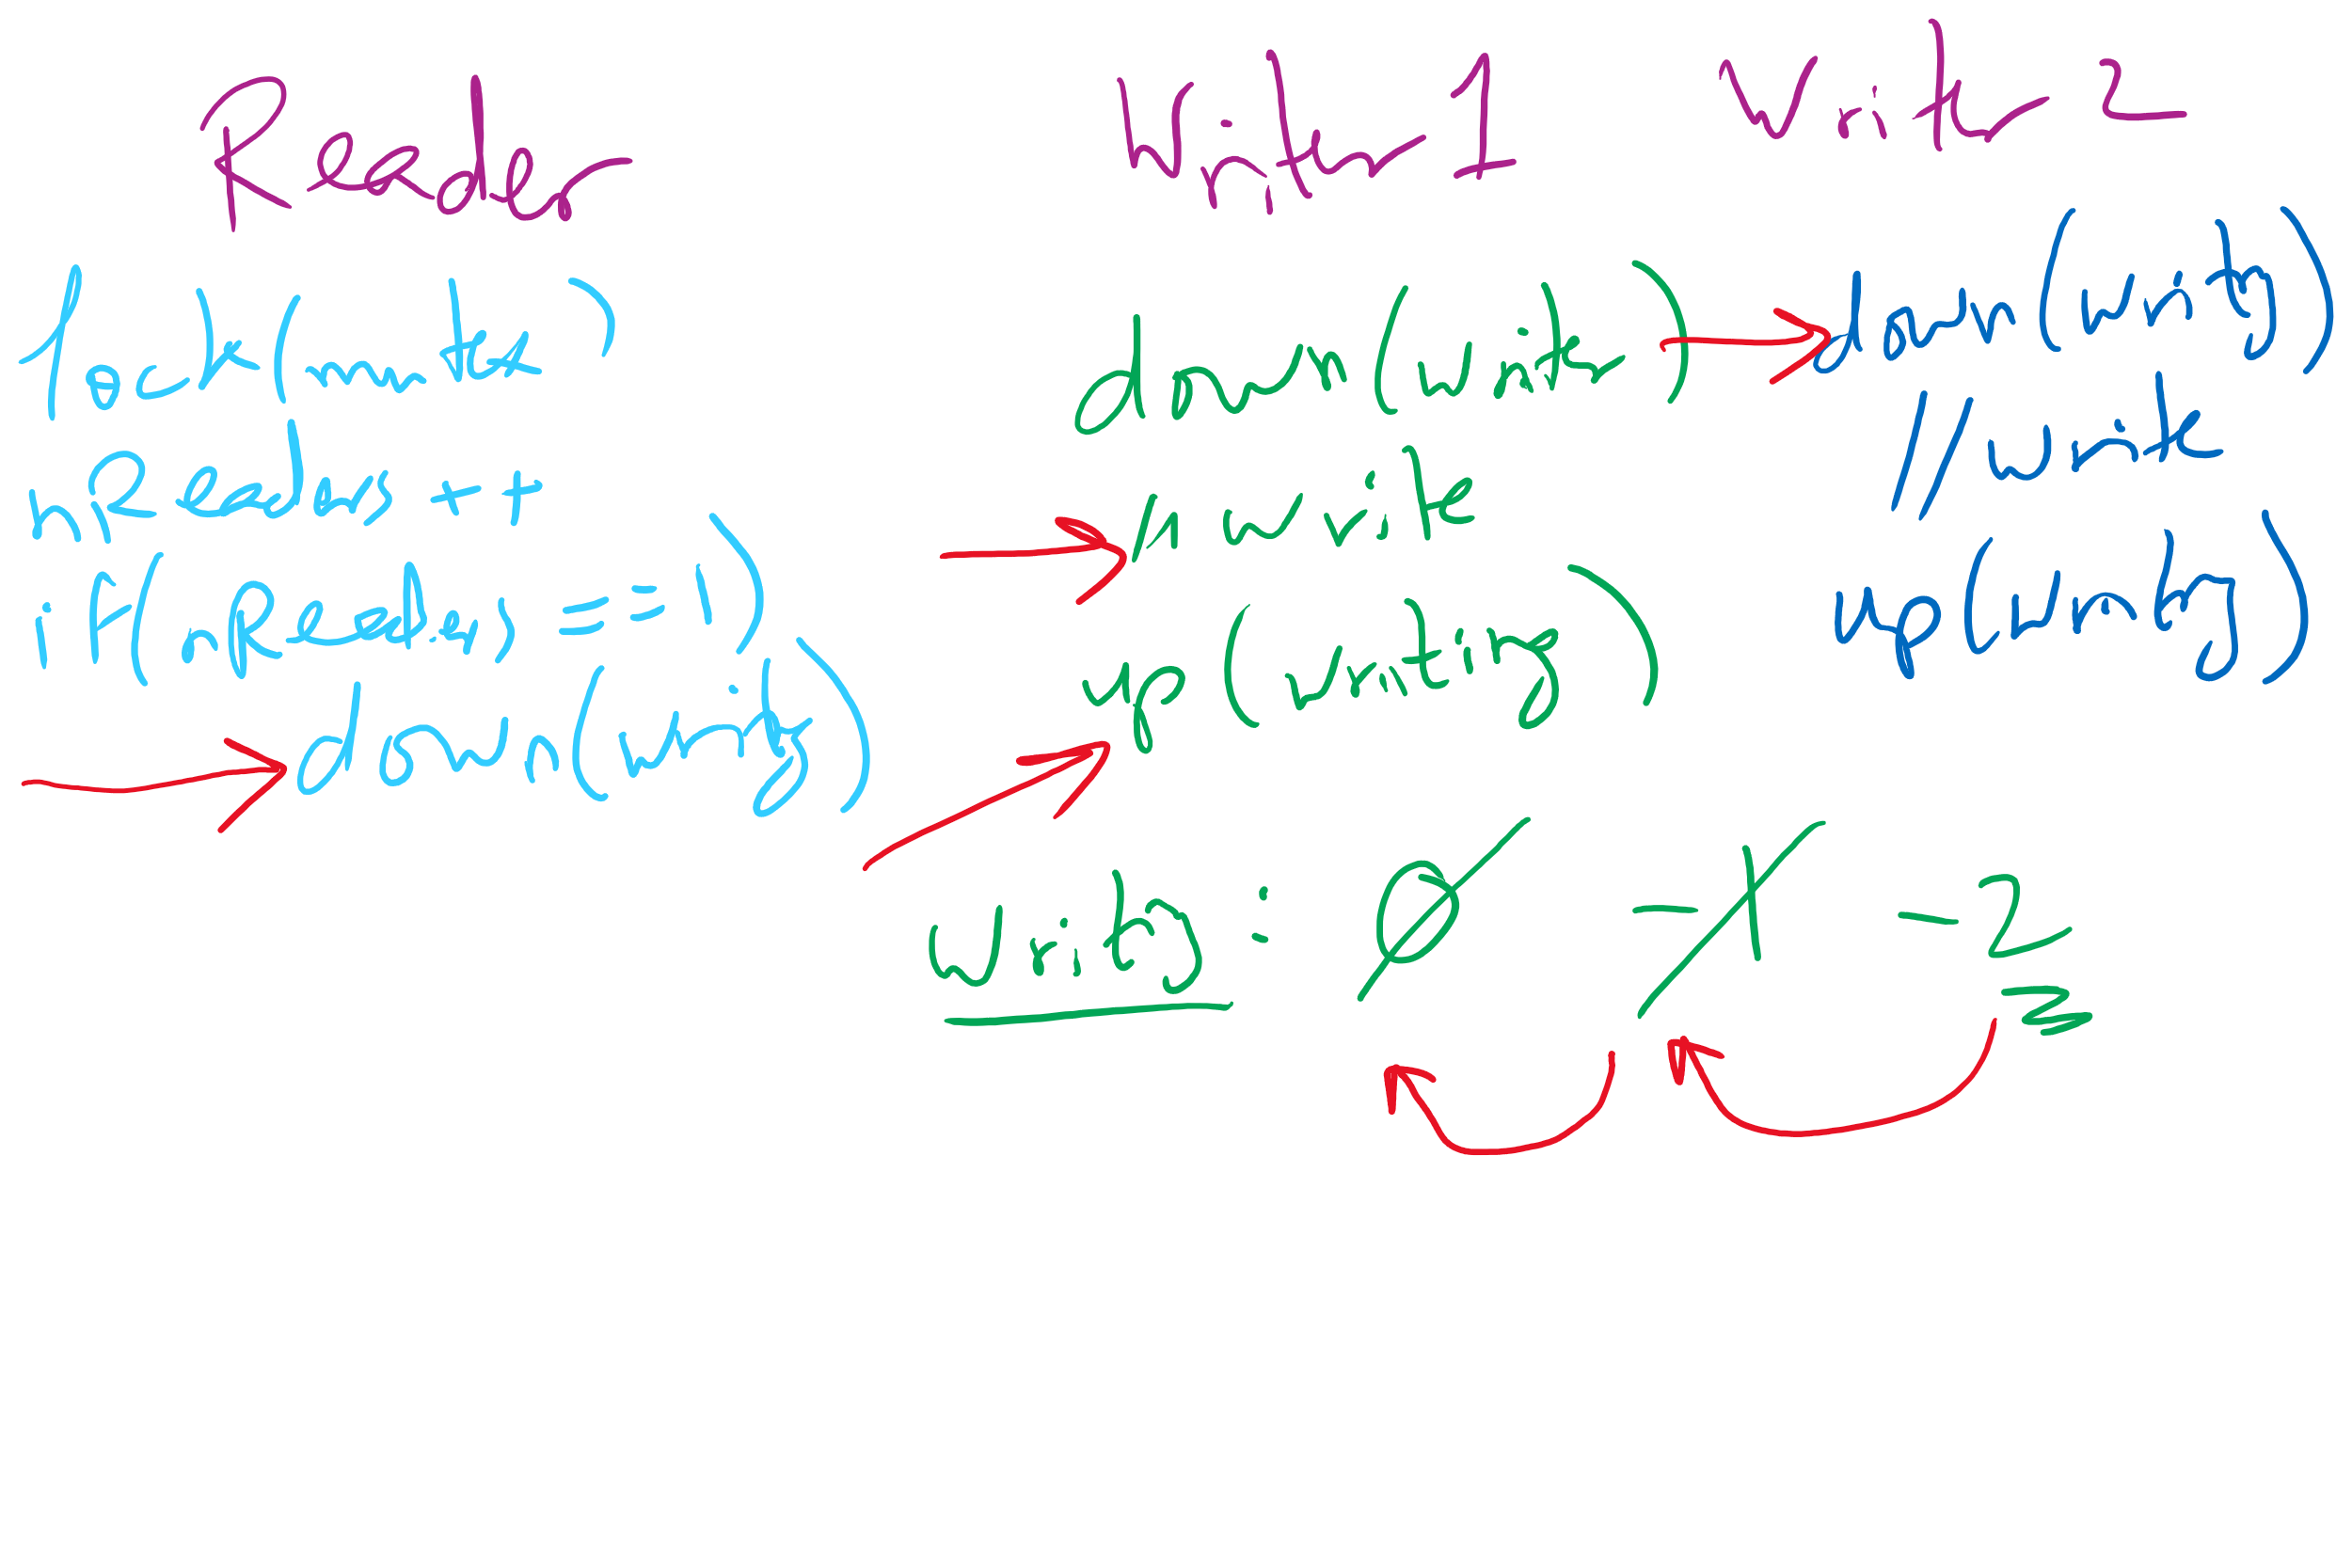 Reader
lock(mutex)
nReaders++
if(nReaders == 1)
down(writing)
Writer 1
down(writing)
// write
up(writing)
Writer 2
down(writing)
// write
up(writing)
Writing: 0 -1 -2